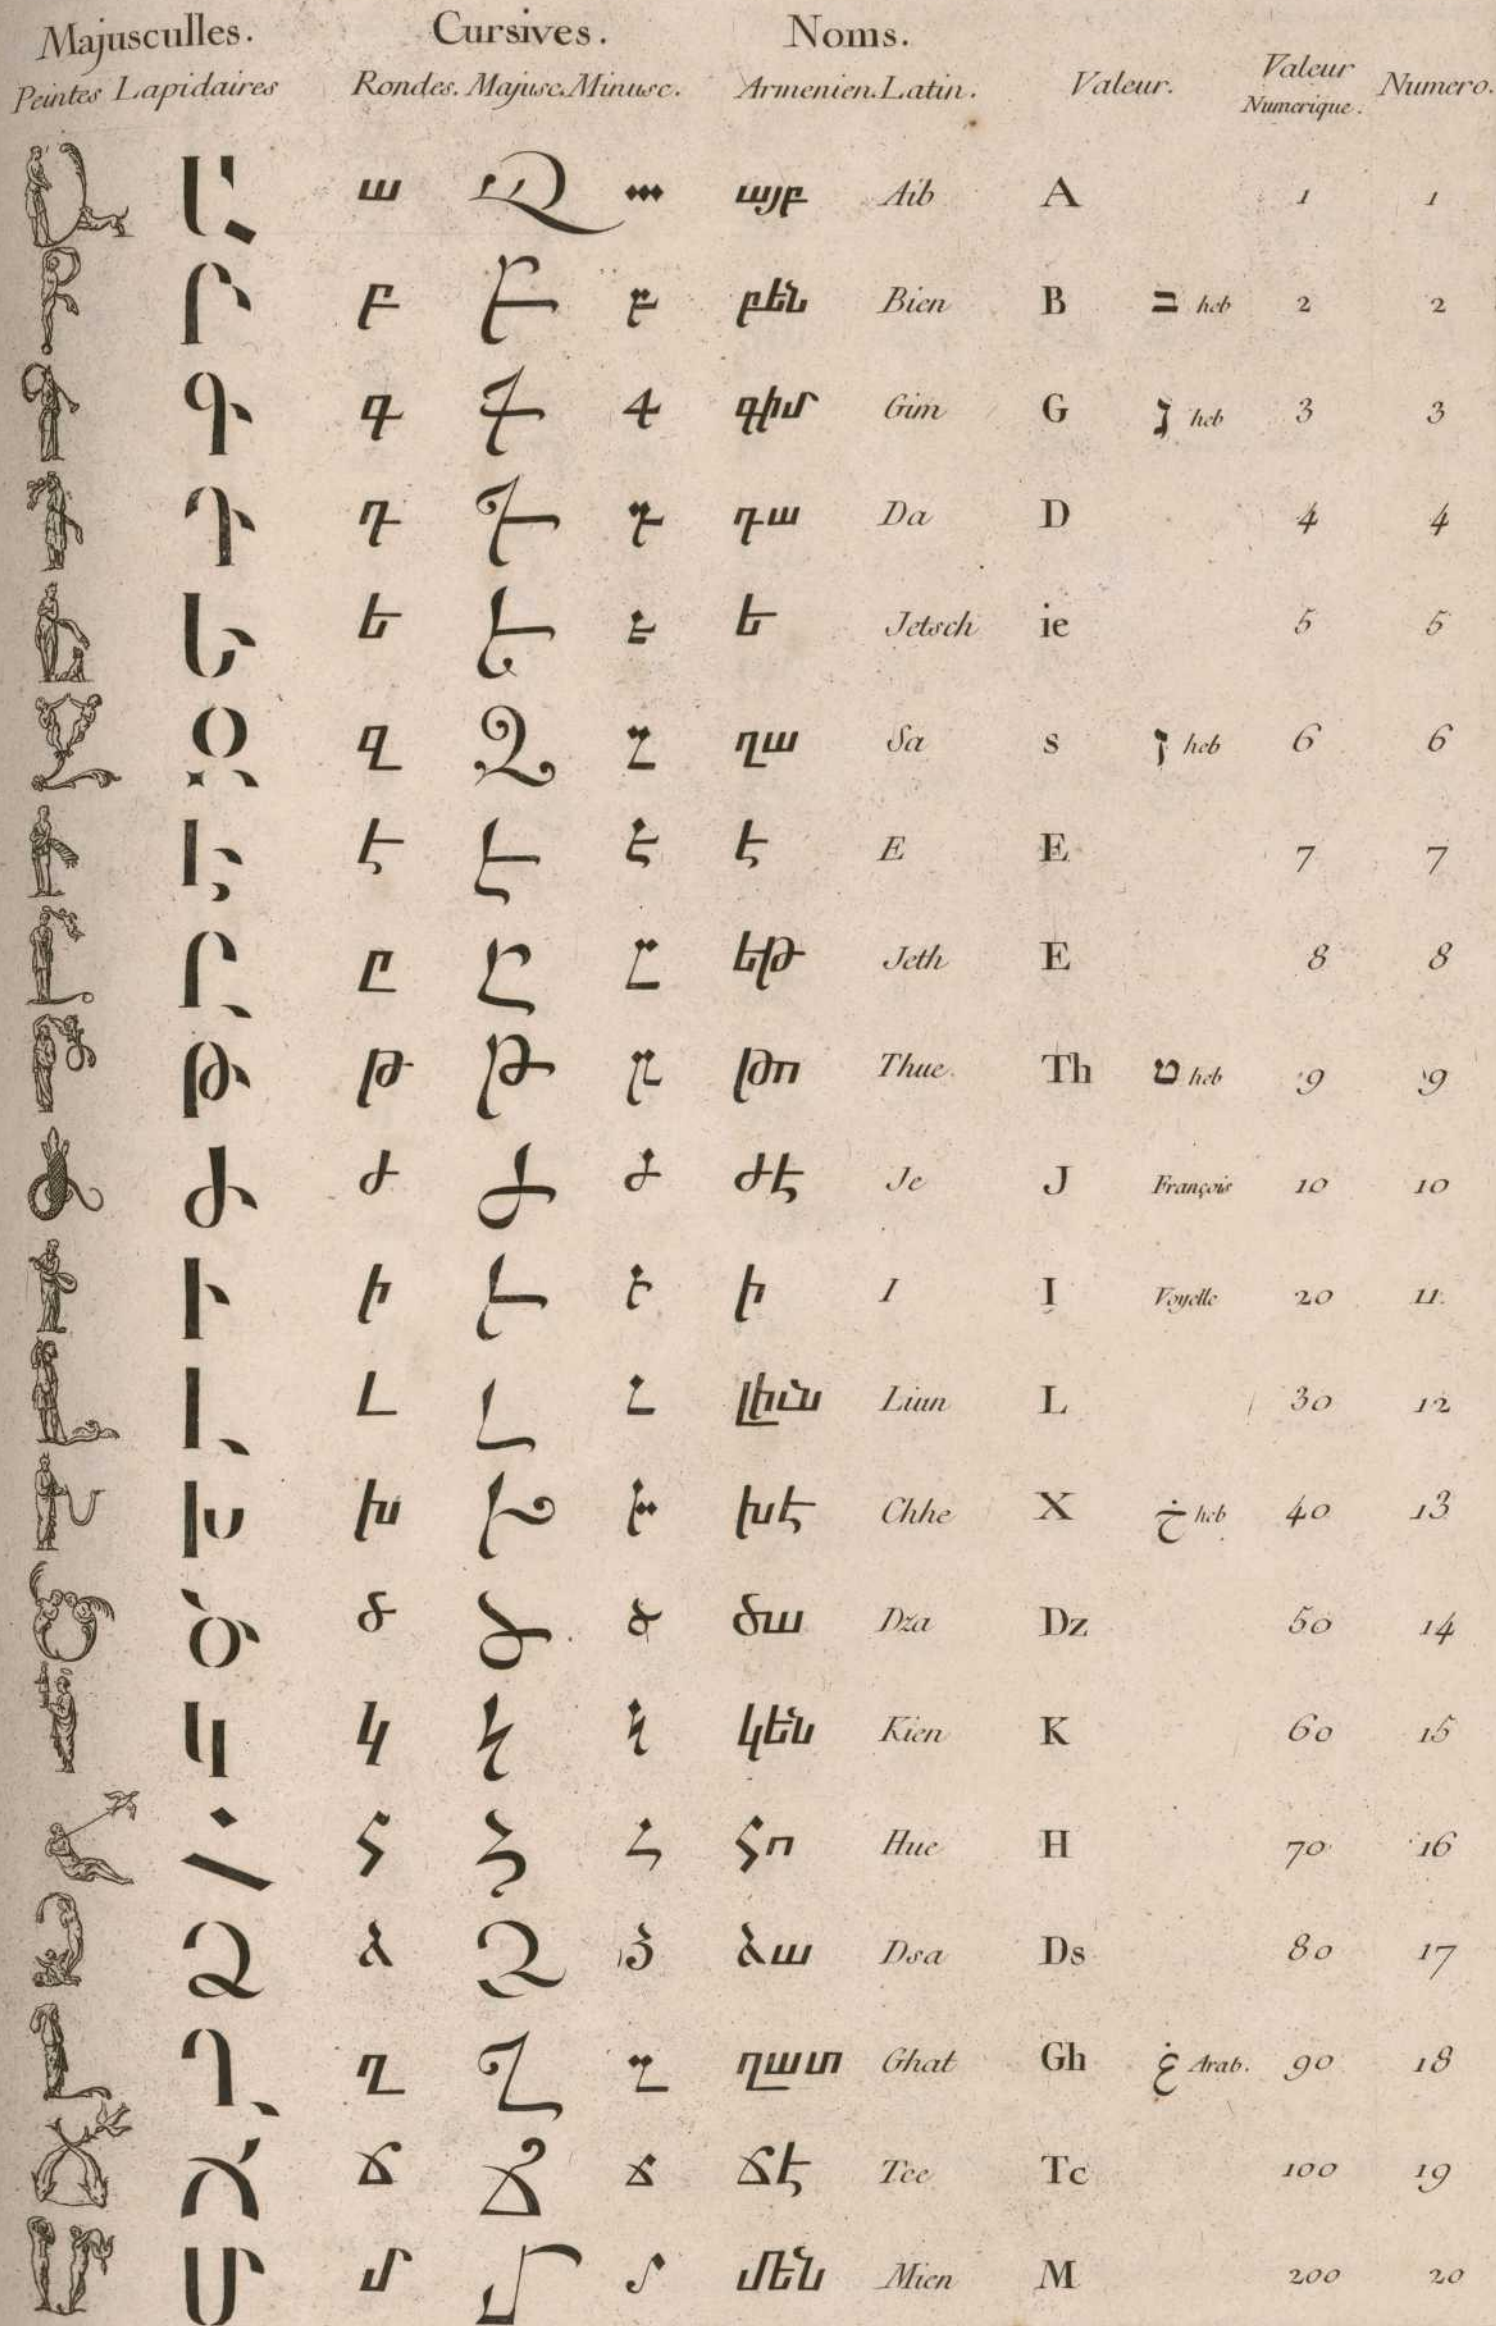 Majusculles. Cursives. Noms.
Peintes Lapidaires Rondes. Majusc. Minusc. Armenien. Latin. Valeur. Valeur Numerique. Numero.
Ա ա Ա ա այբ Aib A 1 1
Բ բ Բ բ բեն Bien B ב heb 2 2
Գ գ Գ գ գիմ Gim G ג heb 3 3
Դ դ Դ դ դա Da D 4 4
Ե ե Ե ե ե Jetsch ie 5 5
Զ զ Զ զ ղա Sa s ז heb 6 6
Է է Է է է E E 7 7
Ը ը Ը ը եթ Jeth E 8 8
Թ թ Թ թ թո Thue. Th ט heb 9 9
Ժ ժ Ժ ժ ժէ Je J François 10 10
Ի ի Ի ի ի I I Voyelle 20 11.
Լ լ Լ լ լիւն Liun L 30 12
Խ խ Խ խ խէ Chhe X خ heb 40 13
Ծ ծ Ծ ծ ծա Dza Dz 50 14
Կ կ Կ կ կեն Kien K 60 15
Հ հ Հ հ հո Hue H 70 16
Ձ ձ Ձ ձ ձա Dsa Ds 80 17
Ղ ղ Ղ ղ ղատ Ghat Gh غ Arab. 90 18
Ճ ճ Ճ ճ ճէ Tce Tc 100 19
Մ մ Մ մ մեն Mien M 200 20